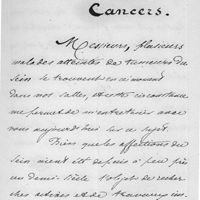 Cancers.
Messieurs, plusieurs
malades atteintes de tumeurs du
sein se trouvent en ce moment
dans nos salles, et cette circonstance
me permet de m'entretenir avec
vous aujourd'hui sur ce sujet.
Bien que les affections du
sein aient été depuis à peu près
un demi-siècle l'objet de recher
ches actives et de travaux im